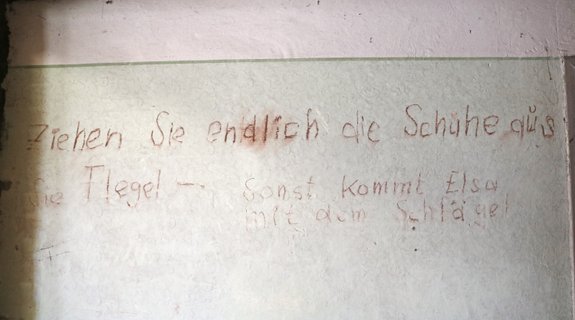 Ziehen Sie endlich die Schuhe aus
Sie Flegel - sonst kommt Elsa
mit dem Schlägel